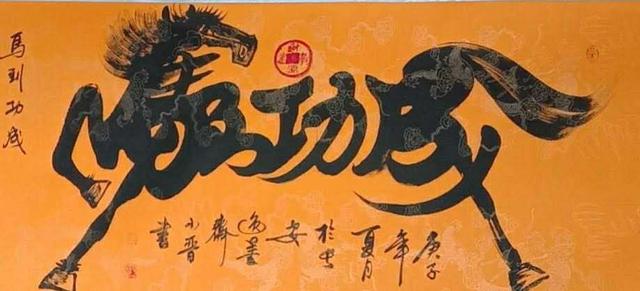 馬到功成
馬到功成
庚子
年
夏月
於長
安
逸墨
齋
小晋
書